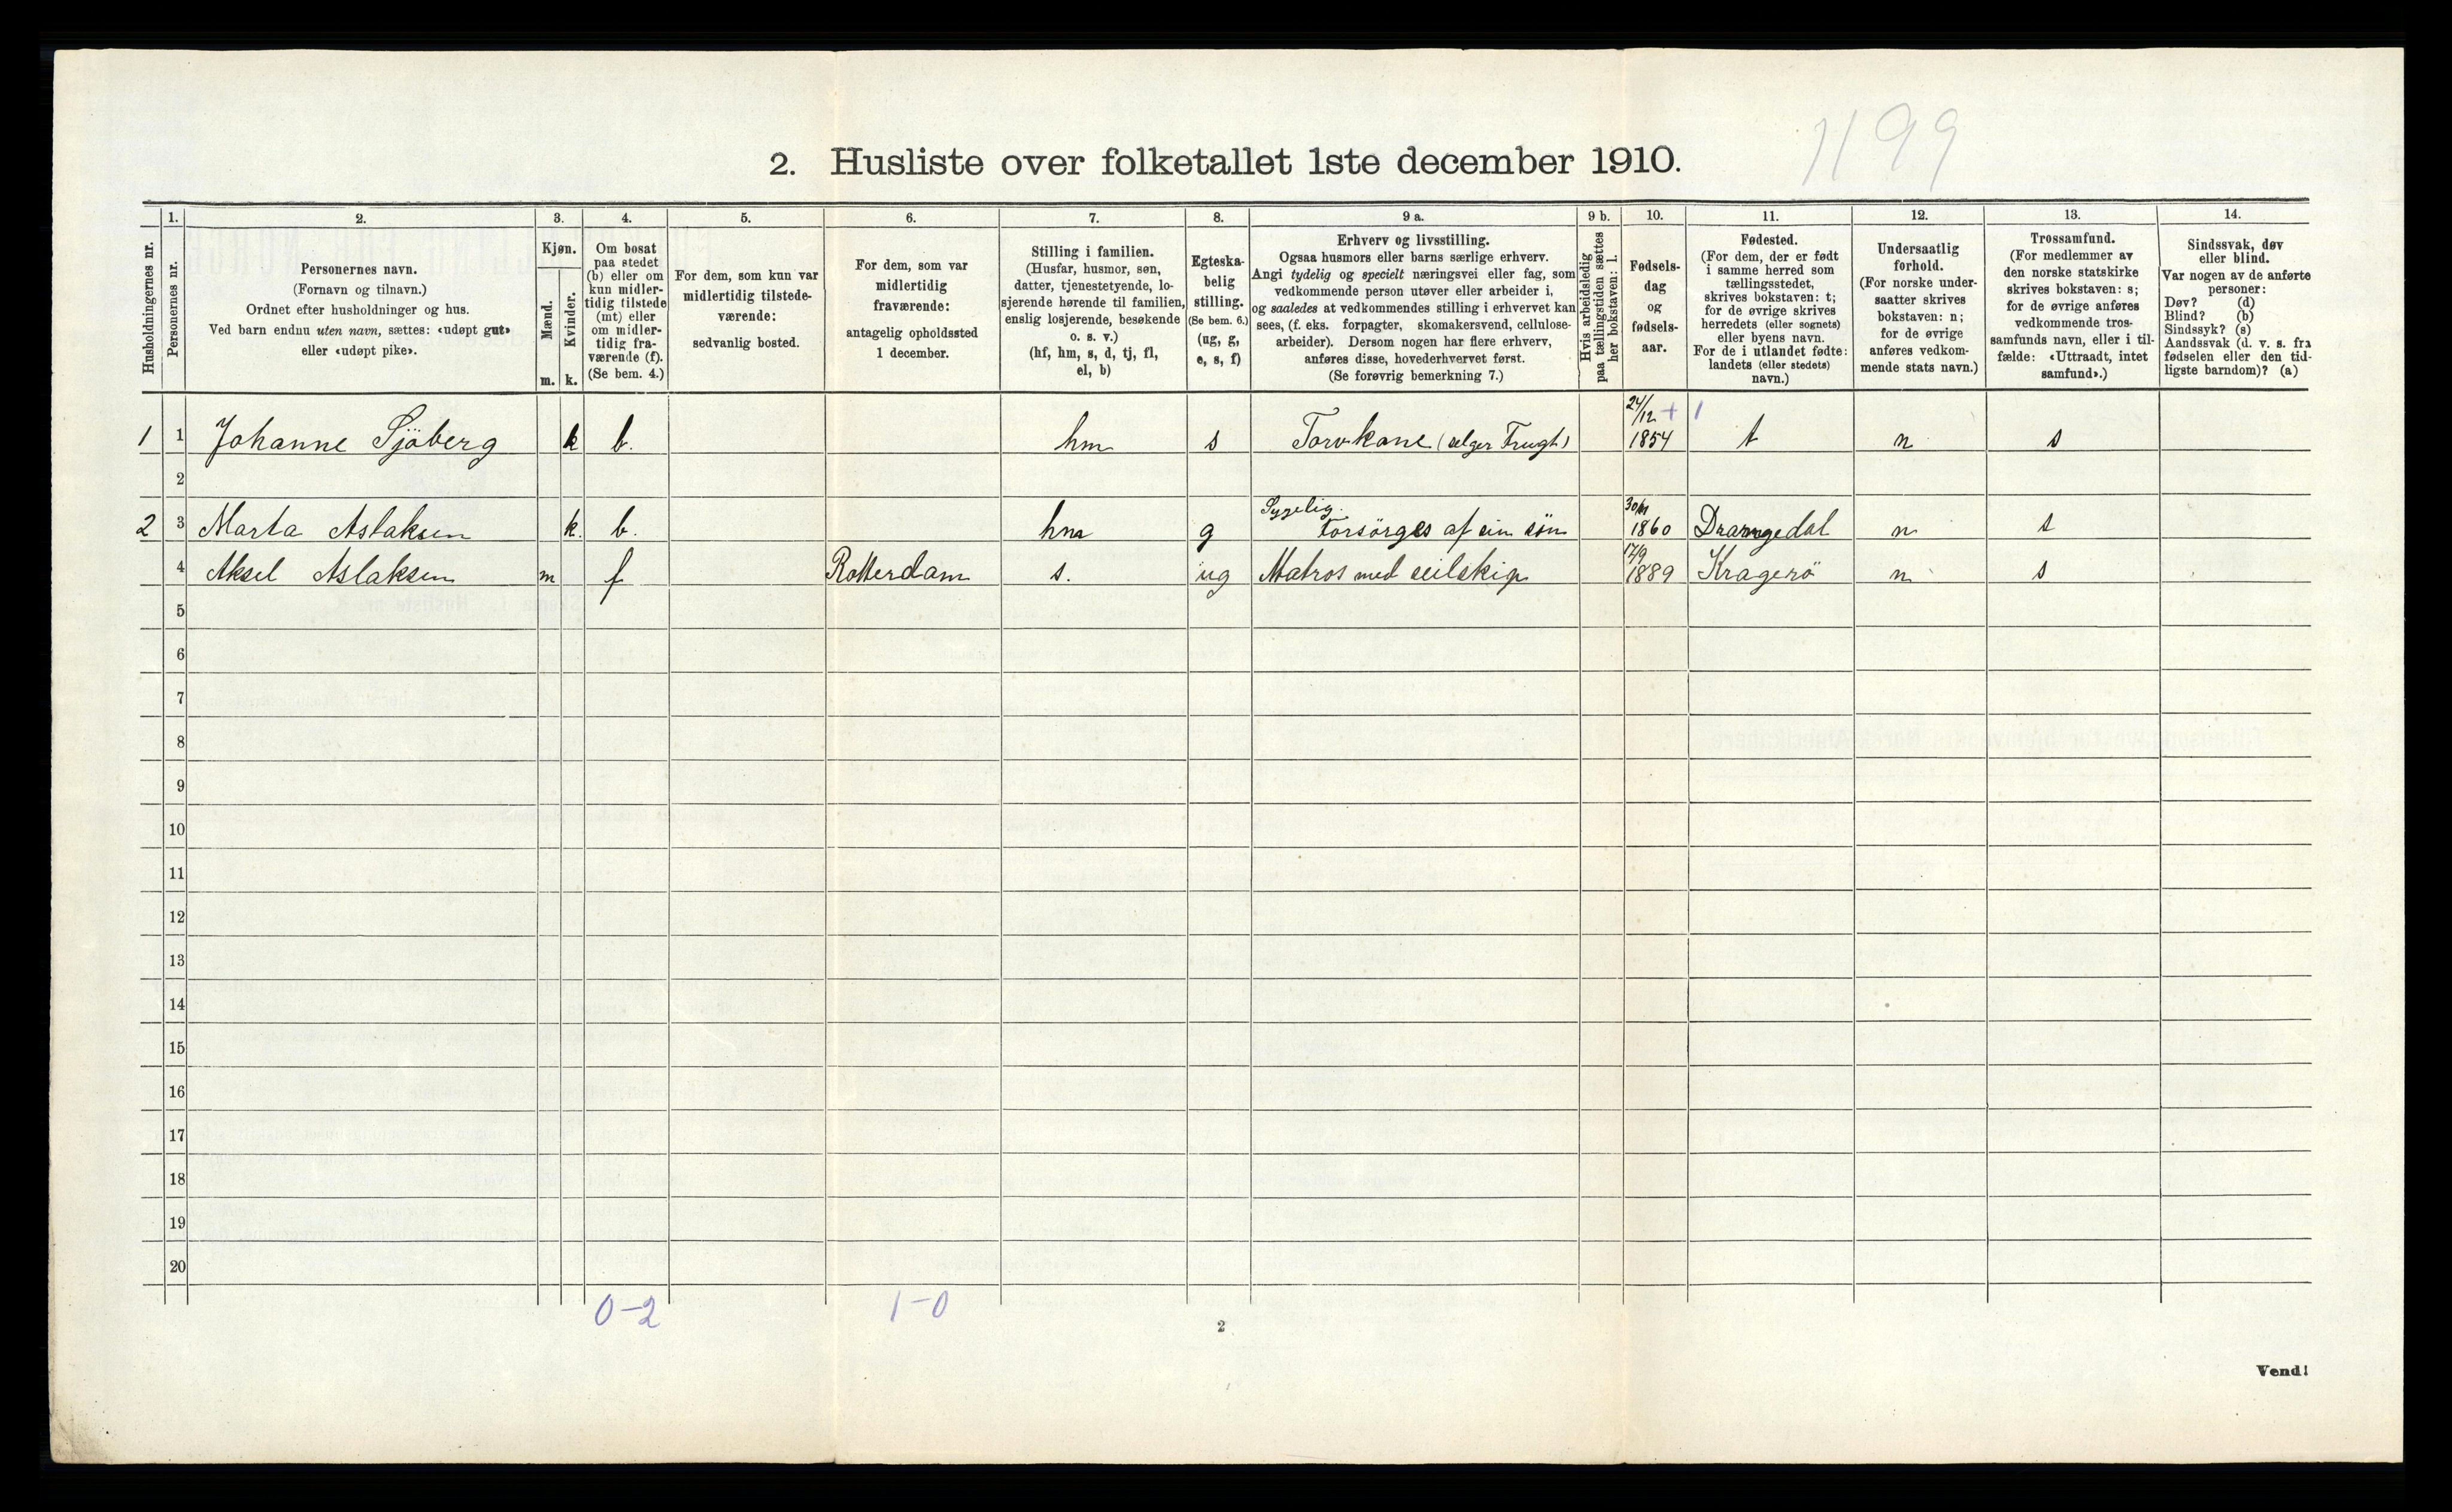 1199
2. Husliste over folketallet 1ste december 1910.
Husholdningernes nr.
1.
Personernes nr.
2.
Personernes navn.
(Fornavn og tilnavn.)
Ordnet efter husholdninger og hus.
Ved barn endnu uten navn, sættes: «udøpt gut»
eller «udøpt pike».
3.
Kjøn.
Mænd.
m.
Kvinder.
k.
4.
Om bosat
paa stedet
(b) eller om
kun midler-
tidig tilstede
(mt) eller
om midler-
tidig fra-
værende (f).
(Se bem. 4.)
5.
For dem, som kun var
midlertidig tilstede-
værende:
sedvanlig bosted.
6.
For dem, som var
midlertidig
fraværende:
antagelig opholdssted
1 december.
7.
Stilling i familien.
(Husfar, husmor, søn,
datter, tjenestetyende, lo-
sjerende hørende til familien,
enslig losjerende, besøkende
o. s. v.)
(hf, hm, s, d, tj, fl,
el, b)
8.
Egteska-
belig
stilling.
(Se bem. 6.)
(ug, g,
e, s, f)
9 a.
Erhverv og livsstilling.
Ogsaa husmors eller barns særlige erhverv.
Angi tydelig og specielt næringsvei eller fag, som
vedkommende person utøver eller arbeider i,
og saaledes at vedkommendes stilling i erhvervet kan
sees, (f. eks. forpagter, skomakersvend, cellulose-
arbeider). Dersom nogen har flere erhverv,
anføres disse, hovederhvervet først.
(Se forøvrig bemerkning 7.)
9 b.
Hvis arbeidsledig
paa tællingstiden sættes
her bokstaven: l.
10.
Fødsels-
dag
og
fødsels-
aar.
11.
Fødested.
(For dem, der er født
i samme herred som
tællingsstedet,
skrives bokstaven: t;
for de øvrige skrives
herredets (eller sognets)
eller byens navn.
For de i utlandet fødte:
landets (eller stedets)
navn.)
12.
Undersaatlig
forhold.
(For norske under-
saatter skrives
bokstaven: n;
for de øvrige
anføres vedkom-
mende stats navn.)
13.
Trossamfund.
(For medlemmer av
den norske statskirke
skrives bokstaven: s;
for de øvrige anføres
vedkommende tros-
samfunds navn, eller i til-
fælde: «Uttraadt, intet
samfund».)
14.
Sindssvak, døv
eller blind.
Var nogen av de anførte
personer:
Døv? (d)
Blind? (b)
Sindssyk? (s)
Aandssvak (d. v. s. fra
fødselen eller den tid-
ligste barndom)? (a)
24/12 + 1
1 1 Johanne Sjöberg k b. hm s Torvkone (selger Frugt) 1854 t n s
2
Sygelig. 30/11
2 3 Marta Aslaksen k. b. hm g Forsörges af sin sön 1860 Drangedal n s
17/9
4 Aksel Aslaksen m f Rotterdam s. ug Matros med seilskip 1889 Kragerö n s
5
6
7
8
9
10
11
12
13
14
15
16
17
18
19
20
0-2 1-0
2
Vend!